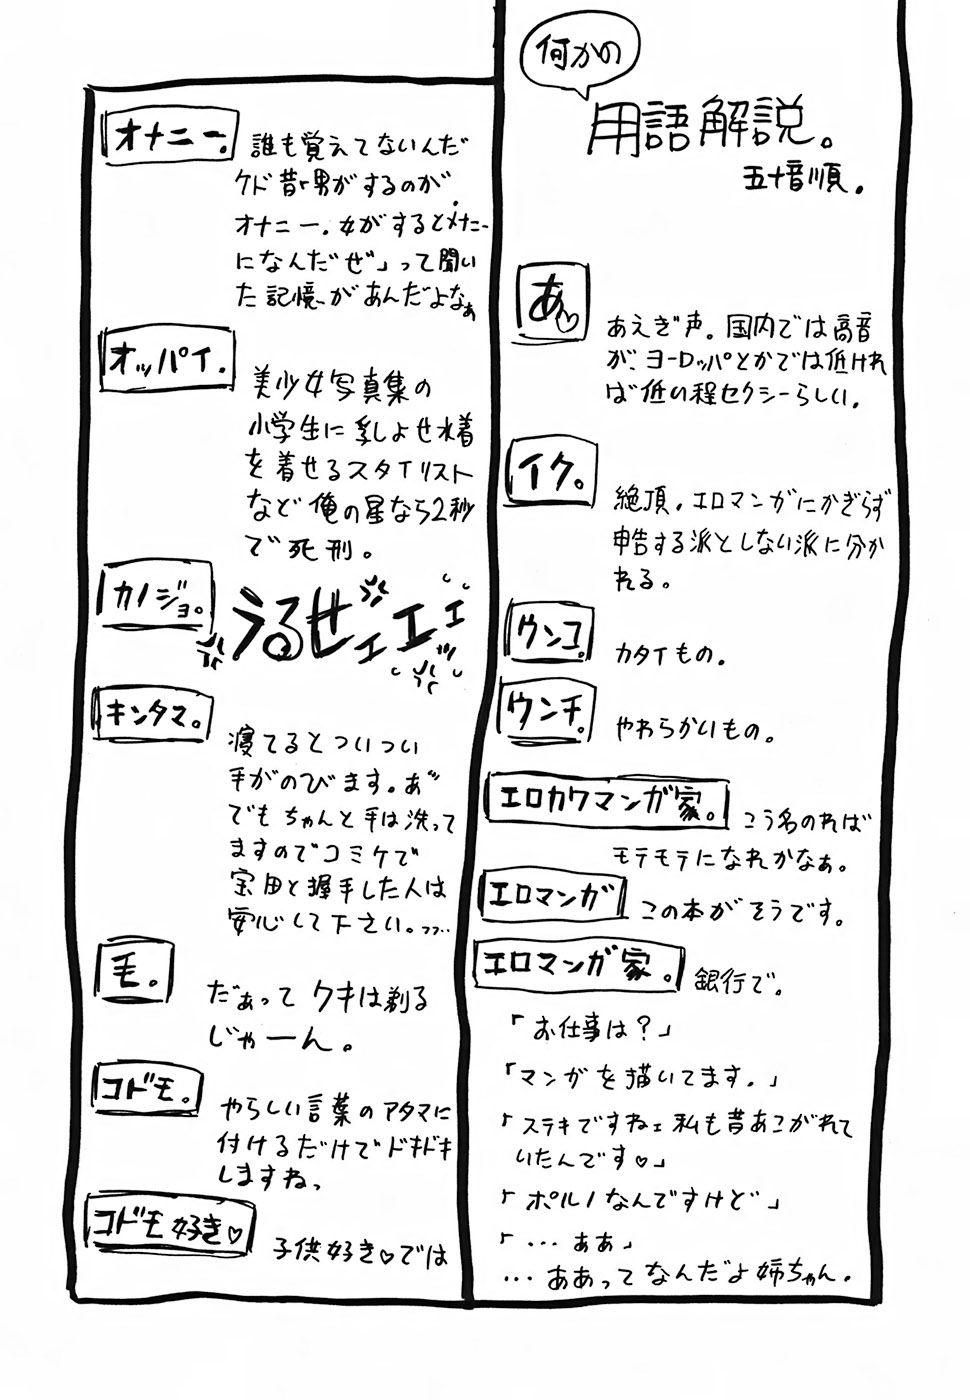 何かの
用語解説。
五十音順。
あ♡
あえぎ声。国内では高音
が、ヨーロッパとかでは低けれ
ば低い程セクシーらしい。
イク。
絶頂。エロマンガにかぎらず
申告する派としない派に分か
れる。
ウンコ。
カタイもの。
ウンチ。
やわらかいもの。
エロカワマンガ家。
こう名のれば
モテモテになれかなぁ。
エロマンガ
この本がそうです。
エロマンガ家。
銀行で。
「お仕事は?」
「マンガを描いてます。」
「ステキですねェ私も昔あこがれて
いたんです♡」
「ポルノなんですけど」
「…ぁぁ」
…ああってなんだよ姉ちゃん。
オナニー。
誰も覚えてないんだ
ケド昔「男がするのが、
オナニー。女がするとメナニー
になんだぜ」って聞い
た記憶があんだよなぁ
オッパイ。
美少女写真集の
小学生に乳よせ水着
を着せるスタイリスト
など俺の星なら2秒
で死刑。
カノジョ。
うるせェエェ
キンタマ。
寝てるとついつい
手がのびます。あ゛
でもちゃんと手は洗って
ますのでコミケで
宝田と握手した人は
安心して下さい。ププ…
毛。
だぁって ワキは剃る
じゃーん。